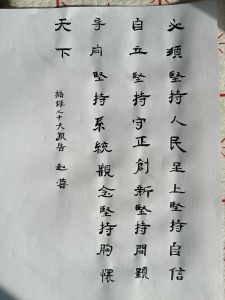 必須堅持人民至上堅持自信
自立堅持守正創新堅持問題
導向堅持系統觀念堅持胸懷
天下
摘錄二十大報告